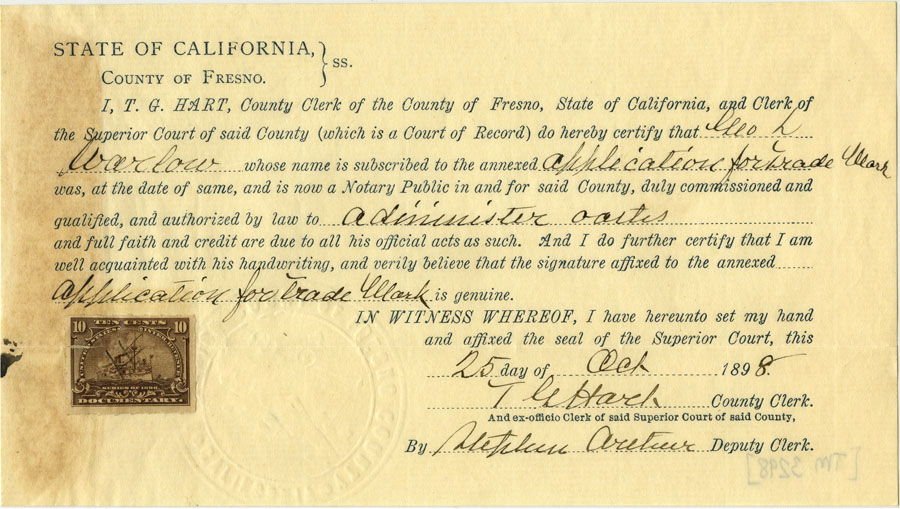 STATE OF CALIFORNIA, } ss.
COUNTY OF FRESNO.
I, T. G. HART, County Clerk of the County of Fresno, State of California, and Clerk of
the Superior Court of said County (which is a Court of Record) do hereby certify that Geo L
Warlow whose name is subscribed to the annexed application for Trade Mark
was, at the date of same, and is now a Notary Public in and for said County, duly commissioned and
qualified, and authorized by law to administer oaths
and full faith and credit are due to all his official acts as such. And I do further certify that I am
well acquainted with his handwriting, and verily believe that the signature affixed to the annexed
application for Trade Mark is genuine.
IN WITNESS WHEREOF, I have hereunto set my hand
and affixed the seal of the Superior Court, this
25 day of Oct 1898.
T G Hart County Clerk.
And ex-officio Clerk of said Superior Court of said County,
By Stephen Deputy Clerk.
10 TEN CENTS 10
SERIES OF 1898
DOCUMENTARY.
[TM 3298]